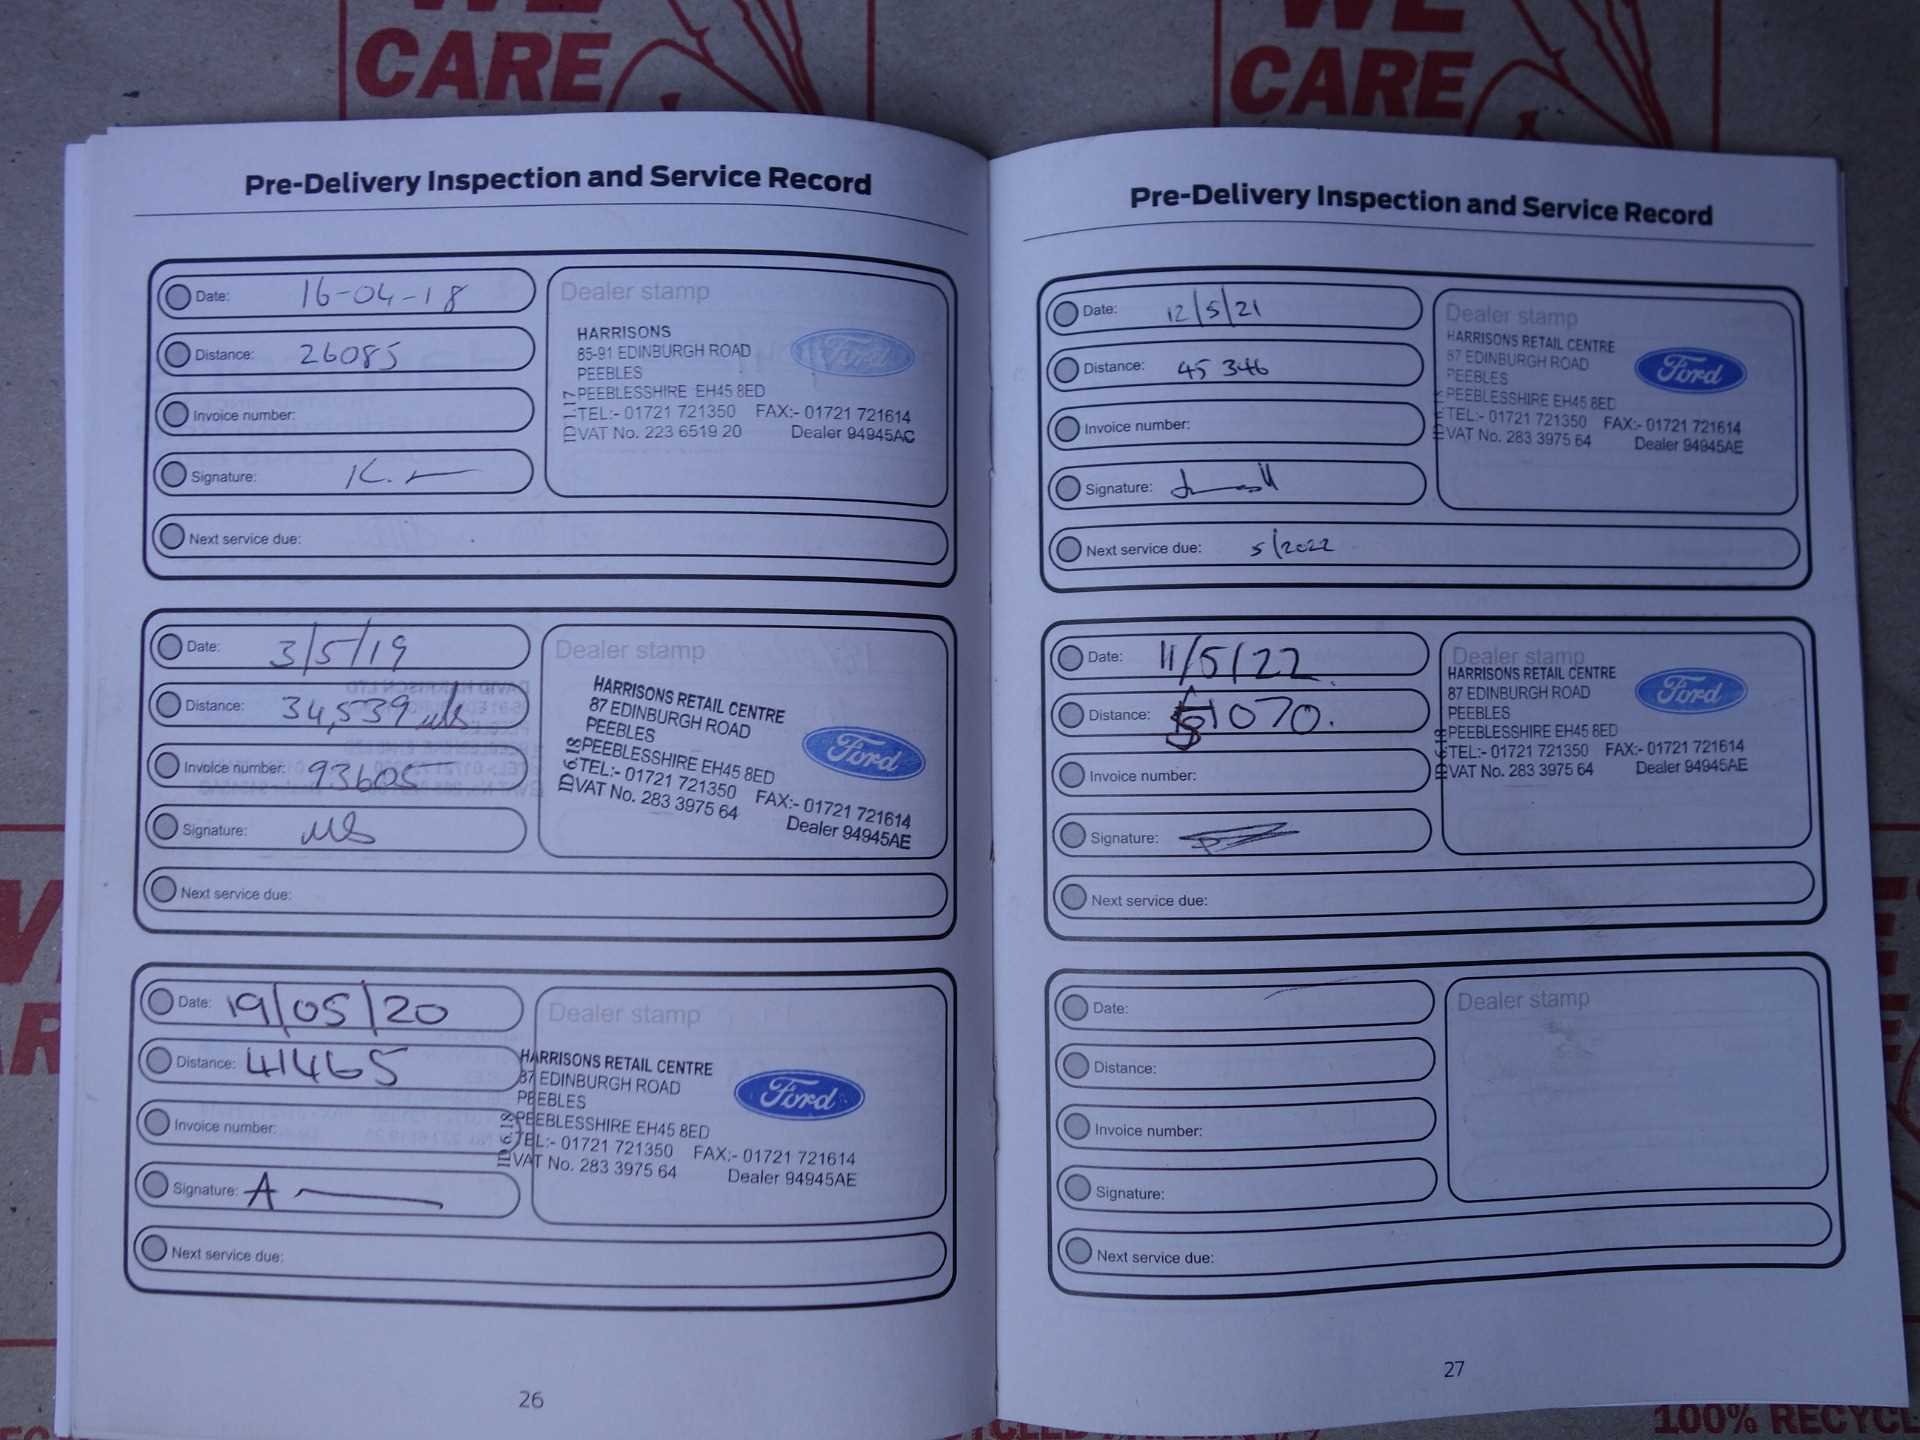 WE
CARE
WE
CARE
Pre-Delivery Inspection and Service Record
Date: 16-04-18
Distance: 26085
Invoice number:
Signature:
Next service due:
Dealer stamp
HARRISONS
85-91 EDINBURGH ROAD
PEEBLES
PEEBLESSHIRE EH45 8ED
TEL:- 01721 721350 FAX:- 01721 721614
VAT No. 223 6519 20 Dealer 94945AC
Ford
Date: 3/5/19
Distance: 34,539 mls
Invoice number: 93605
Signature:
Next service due:
Dealer stamp
HARRISONS RETAIL CENTRE
87 EDINBURGH ROAD
PEEBLES
PEEBLESSHIRE EH45 8ED
TEL:- 01721 721350 FAX:- 01721 721614
VAT No. 283 3975 64 Dealer 94945AE
Ford
Date: 19/05/20
Distance: 41465
Invoice number:
Signature: A
Next service due:
Dealer stamp
HARRISONS RETAIL CENTRE
87 EDINBURGH ROAD
PEEBLES
PEEBLESSHIRE EH45 8ED
TEL:- 01721 721350 FAX:- 01721 721614
VAT No. 283 3975 64 Dealer 94945AE
Ford
26
Pre-Delivery Inspection and Service Record
Date: 12/5/21
Distance: 45346
Invoice number:
Signature:
Next service due: 5/2022
Dealer stamp
HARRISONS RETAIL CENTRE
87 EDINBURGH ROAD
PEEBLES
PEEBLESSHIRE EH45 8ED
TEL:- 01721 721350 FAX:- 01721 721614
VAT No. 283 3975 64 Dealer 94945AE
Ford
Date: 11/5/22
Distance: 51070.
Invoice number:
Signature:
Next service due:
Dealer stamp
HARRISONS RETAIL CENTRE
87 EDINBURGH ROAD
PEEBLES
PEEBLESSHIRE EH45 8ED
TEL:- 01721 721350 FAX:- 01721 721614
VAT No. 283 3975 64 Dealer 94945AE
Ford
Date:
Distance:
Invoice number:
Signature:
Next service due:
Dealer stamp
27
100% RECYCL